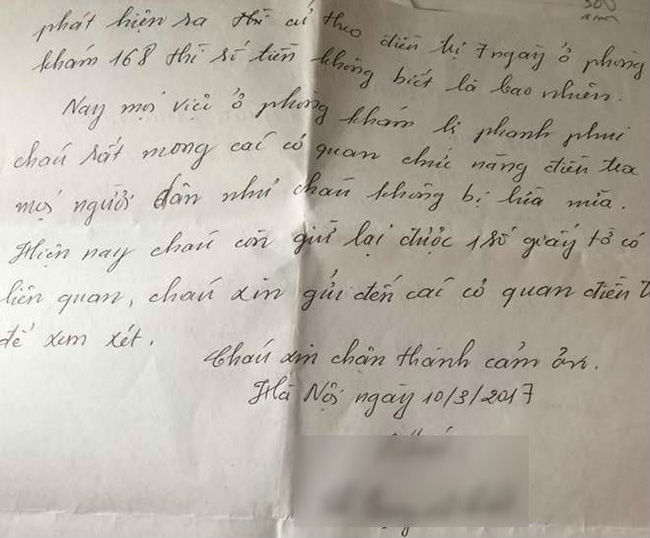 phát hiện ra thì cứ theo điều trị 7 ngày ở phòng
khám 168 thì số tiền không biết là bao nhiêu.
Nay mọi việc ở phòng khám bị phanh phui
cháu rất mong các cơ quan chức năng điều tra
mọi người dân như cháu không bị lừa nữa.
Hiện nay cháu còn giữ lại được 1 số giấy tờ có
liên quan, cháu xin gửi đến các cơ quan điều t
để xem xét.
Cháu xin chân thành cảm ơn.
Hà Nội ngày 10/3/2017